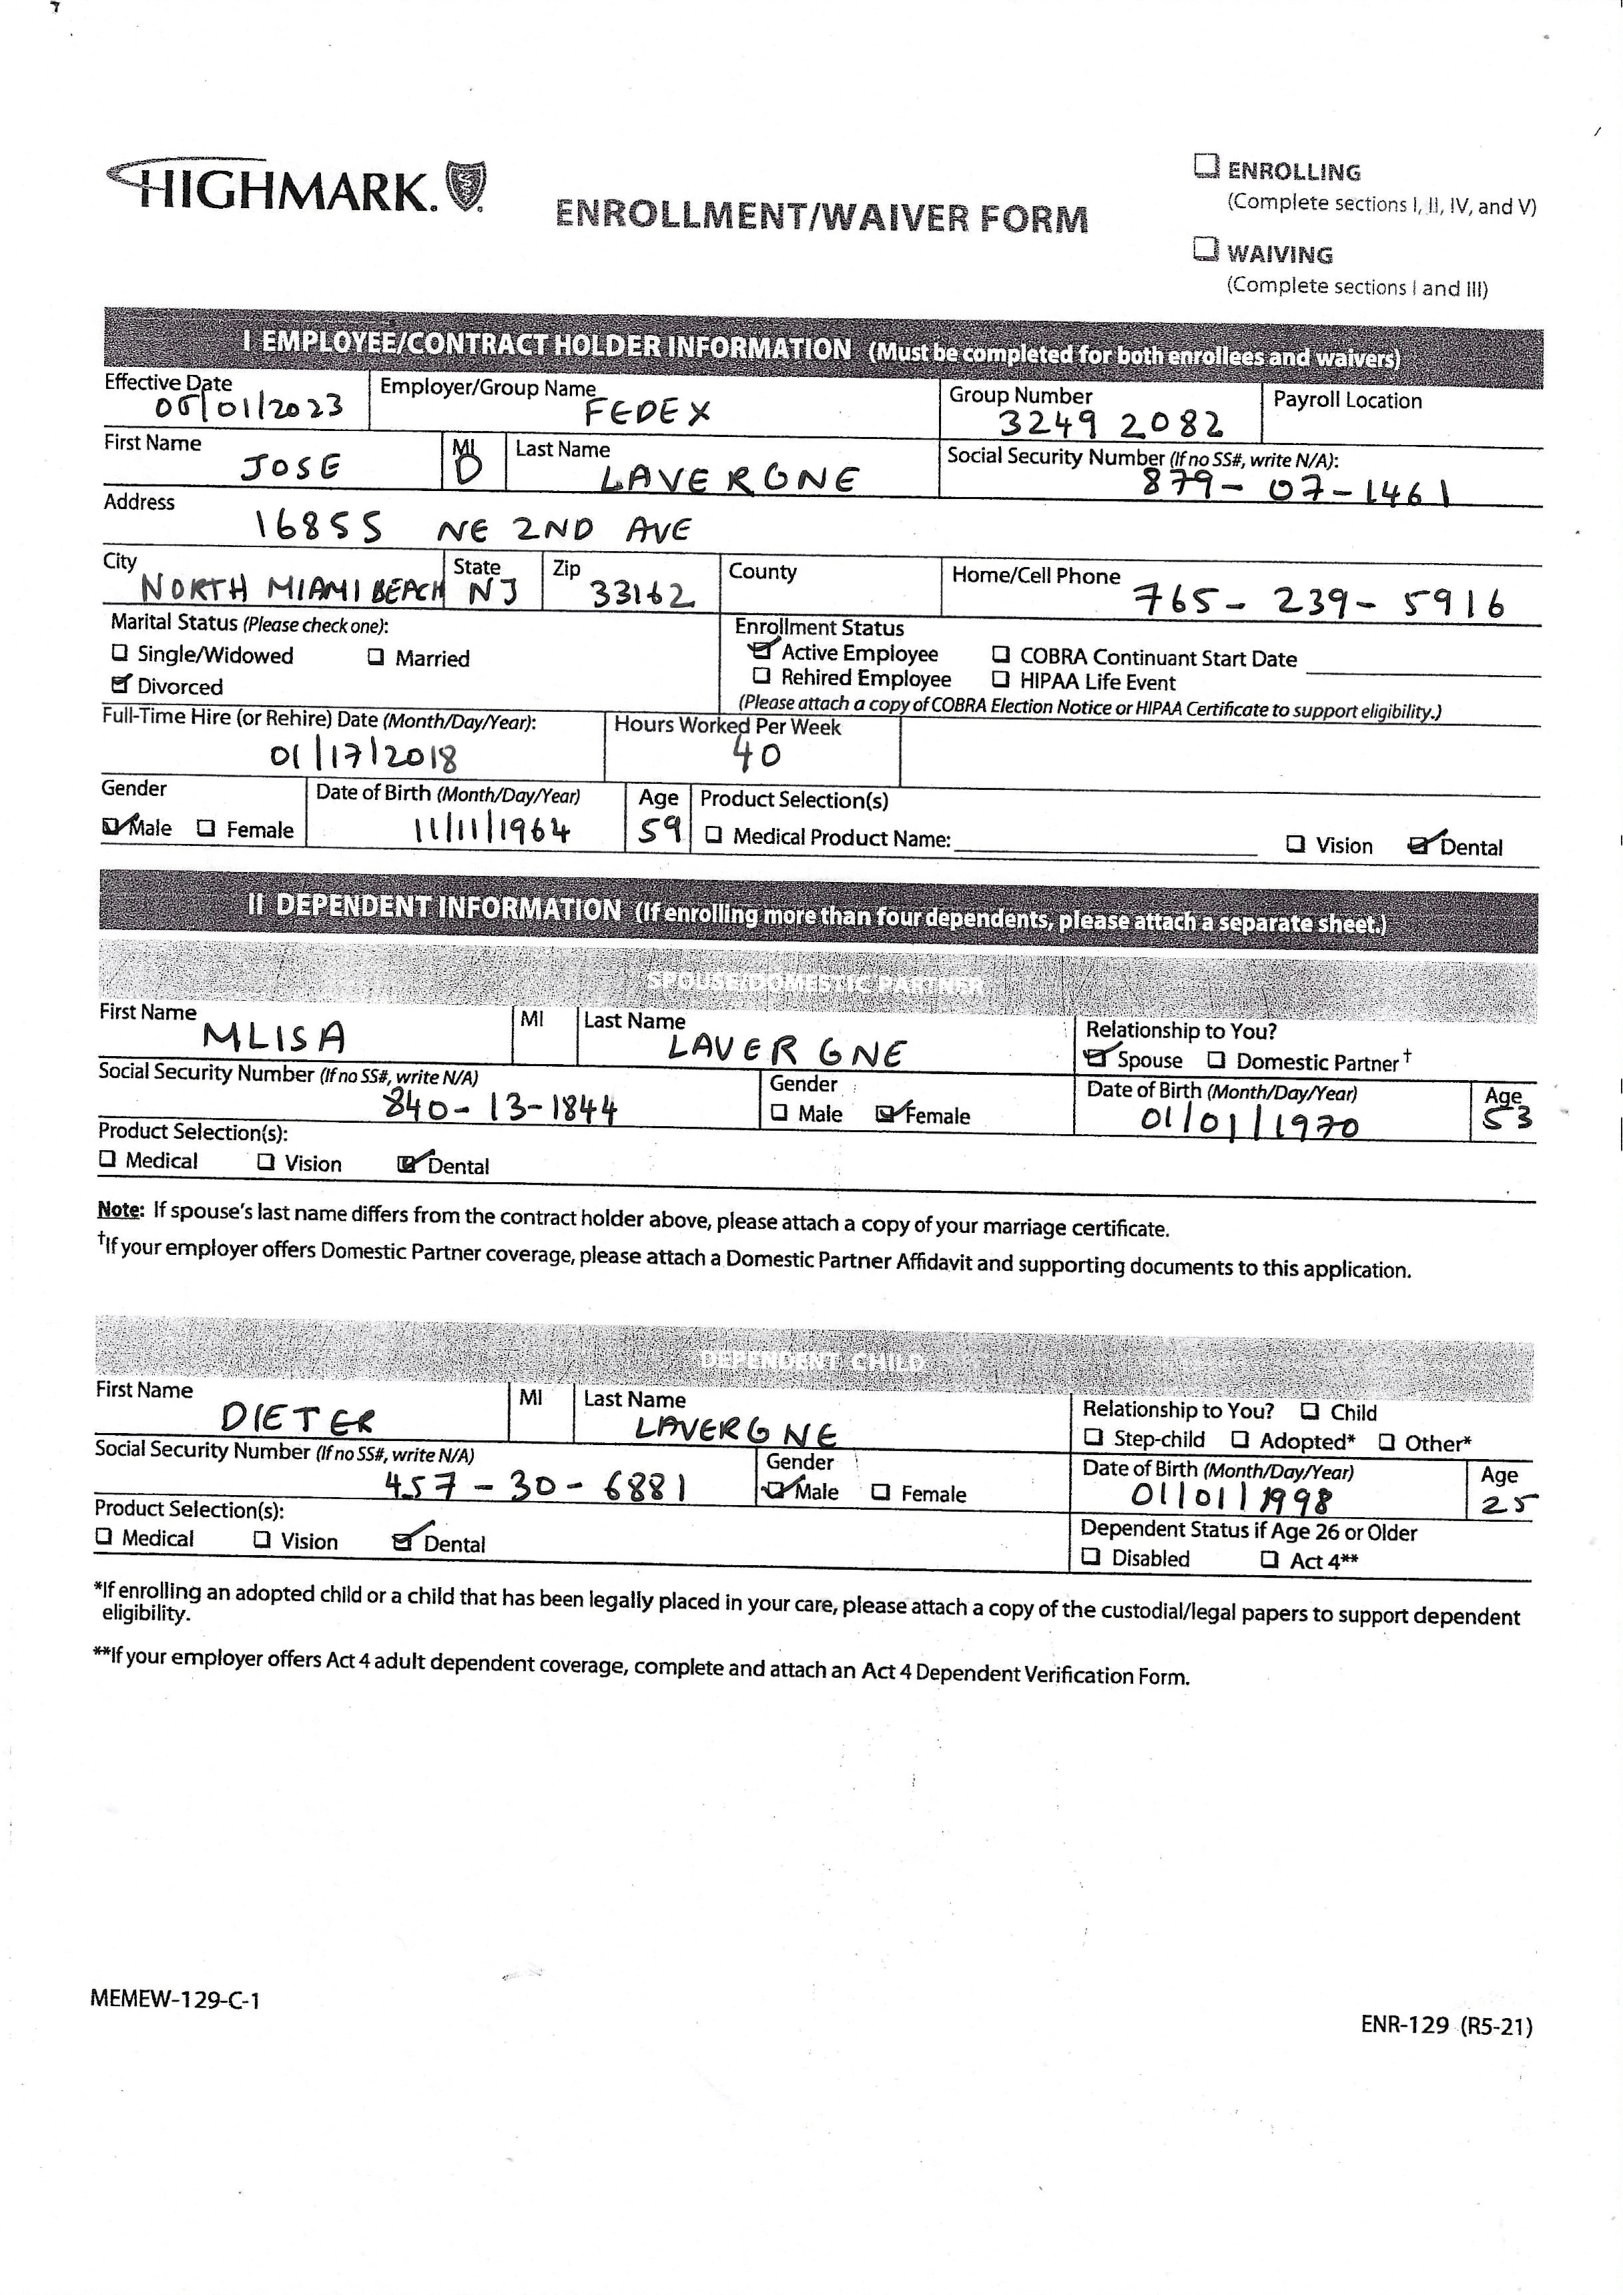 HIGHMARK.
ENROLLMENT/WAIVER FORM
☐ ENROLLING
(Complete sections I, II, IV, and V)
☐ WAIVING
(Complete sections I and III)
I EMPLOYEE/CONTRACT HOLDER INFORMATION (Must be completed for both enrollees and waivers)
Effective Date 05/01/2023 Employer/Group Name FEDEX Group Number 3249 2082 Payroll Location
First Name JOSE MI D Last Name LAVERGNE Social Security Number (If no SS#, write N/A): 879-07-1461
Address 16855 NE 2ND AVE
City NORTH MIAMI BEACH State NJ Zip 33162 County Home/Cell Phone 765-239-5916
Marital Status (Please check one): Enrollment Status
☐ Single/Widowed ☐ Married ☑ Active Employee ☐ COBRA Continuant Start Date
☑ Divorced ☐ Rehired Employee ☐ HIPAA Life Event
(Please attach a copy of COBRA Election Notice or HIPAA Certificate to support eligibility.)
Full-Time Hire (or Rehire) Date (Month/Day/Year): 01/17/2018 Hours Worked Per Week 40
Gender Date of Birth (Month/Day/Year) Age Product Selection(s)
☑ Male ☐ Female 11/11/1964 59 ☐ Medical Product Name: ☐ Vision ☑ Dental
II DEPENDENT INFORMATION (If enrolling more than four dependents, please attach a separate sheet.)
SPOUSE/DOMESTIC PARTNER
First Name MLISA MI Last Name LAVERGNE Relationship to You?
☑ Spouse ☐ Domestic Partner†
Social Security Number (If no SS#, write N/A) 840-13-1844 Gender ☐ Male ☑ Female Date of Birth (Month/Day/Year) 01/01/1970 Age 53
Product Selection(s):
☐ Medical ☐ Vision ☑ Dental
Note: If spouse's last name differs from the contract holder above, please attach a copy of your marriage certificate.
†If your employer offers Domestic Partner coverage, please attach a Domestic Partner Affidavit and supporting documents to this application.
DEPENDENT CHILD
First Name DIETER MI Last Name LAVERGNE Relationship to You? ☐ Child
☐ Step-child ☐ Adopted* ☐ Other*
Social Security Number (If no SS#, write N/A) 457-30-6881 Gender ☑ Male ☐ Female Date of Birth (Month/Day/Year) 01/01/1998 Age 25
Product Selection(s): Dependent Status if Age 26 or Older
☐ Medical ☐ Vision ☑ Dental ☐ Disabled ☐ Act 4**
*If enrolling an adopted child or a child that has been legally placed in your care, please attach a copy of the custodial/legal papers to support dependent
eligibility.
**If your employer offers Act 4 adult dependent coverage, complete and attach an Act 4 Dependent Verification Form.
MEMEW-129-C-1
ENR-129 (R5-21)